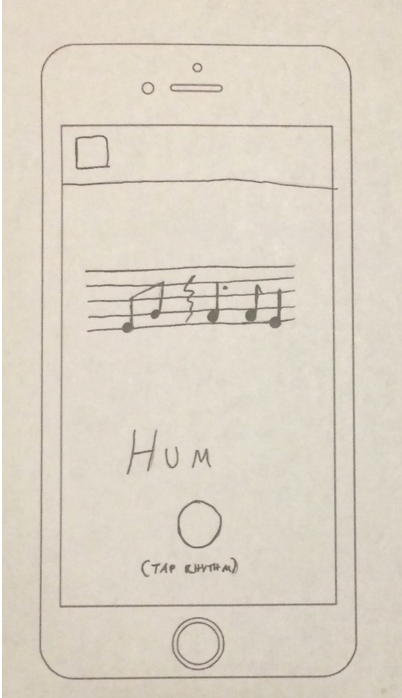 HUM
(TAP RHYTHM)